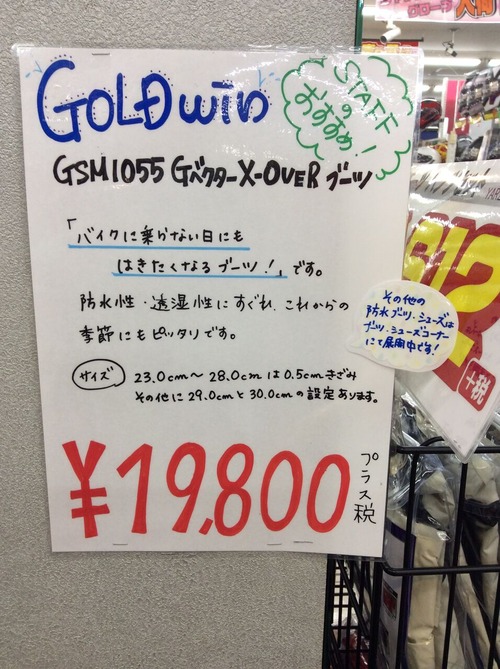 GOLDWIN
STAFF
の
おすすめ！
GSM1055 GベクターX-OVER ブーツ
「バイクに乗らない日にも
はきたくなるブーツ！」です。
防水性・透湿性にすぐれ、これからの
季節にもピッタリです。
サイズ 23.0cm〜28.0cmは0.5cmきざみ
その他に29.0cmと30.0cmの設定あります。
¥19,800 プラス税
その他の
防水ブーツ・シューズは
ブーツ・シューズコーナー
にて展開中です！
+税